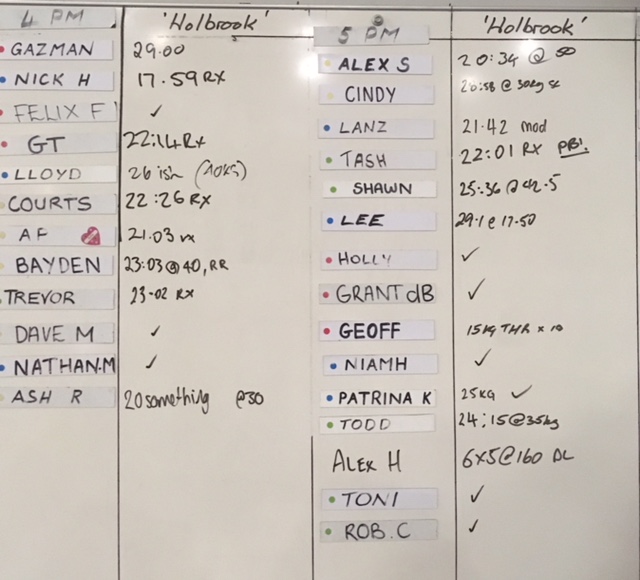 4 PM 'Holbrook'
GAZMAN 29.00
NICK H 17.59 RX
FELIX F ✓
GT 22:14 Rx
LLOYD 26 ish (40KG)
COURTS 22:26 RX
AF 21.03 rx
BAYDEN 23:03 @ 40, RR
TREVOR 23-02 RX
DAVE M ✓
NATHAN.M ✓
ASH R 20 something @30
5 PM 'Holbrook'
ALEX S 20:34 @
CINDY 20:58 @ 30kg
LANZ 21.42 mod
TASH 22:01 RX PB!
SHAWN 25:36 @ 42.5
LEE 29.1 @ 17.50
HOLLY ✓
GRANT dB ✓
GEOFF 15KG THR x 10
NIAMH ✓
PATRINA K 25KG ✓
TODD 24:15@35kg
ALEX H 6x5@160 DL
TONI ✓
ROB.C ✓